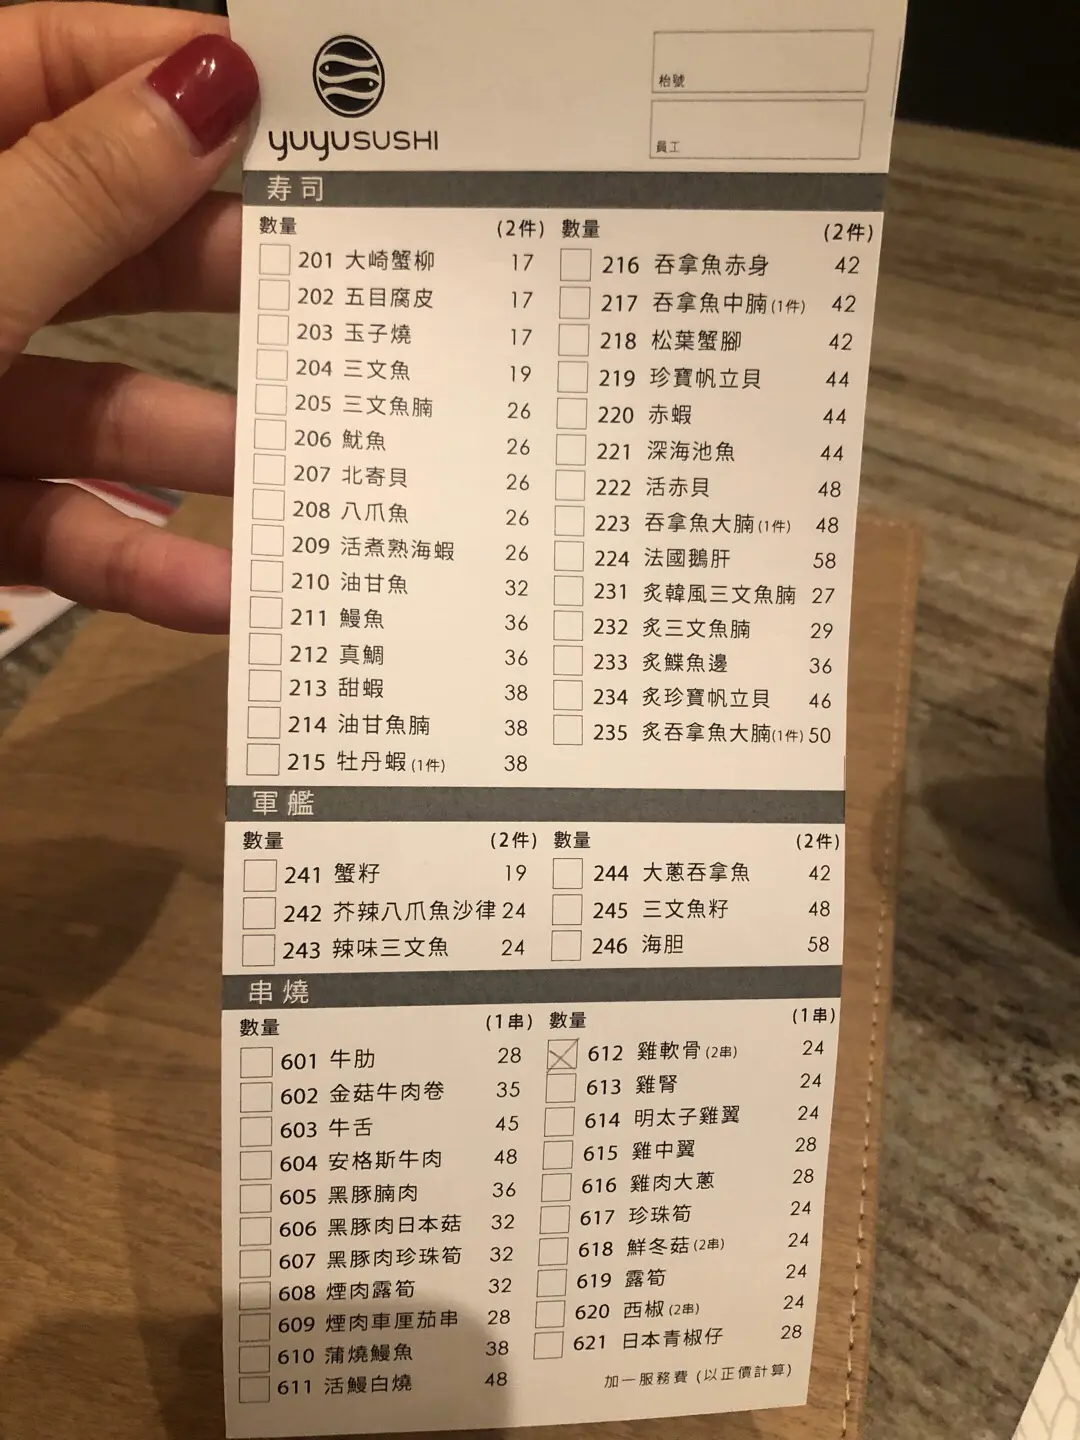 yuyuSUSHI
枱號
員工
寿司
數量 (2件)
201 大崎蟹柳 17
202 五目腐皮 17
203 玉子燒 17
204 三文魚 19
205 三文魚腩 26
206 魷魚 26
207 北寄貝 26
208 八爪魚 26
209 活煮熟海蝦 26
210 油甘魚 32
211 鰻魚 36
212 真鯛 36
213 甜蝦 38
214 油甘魚腩 38
215 牡丹蝦(1件) 38
數量 (2件)
216 吞拿魚赤身 42
217 吞拿魚中腩(1件) 42
218 松葉蟹腳 42
219 珍寶帆立貝 44
220 赤蝦 44
221 深海池魚 44
222 活赤貝 48
223 吞拿魚大腩(1件) 48
224 法國鵝肝 58
231 炙韓風三文魚腩 27
232 炙三文魚腩 29
233 炙鰈魚邊 36
234 炙珍寶帆立貝 46
235 炙吞拿魚大腩(1件) 50
軍艦
數量 (2件)
241 蟹籽 19
242 芥辣八爪魚沙律 24
243 辣味三文魚 24
數量 (2件)
244 大蔥吞拿魚 42
245 三文魚籽 48
246 海胆 58
串燒
數量 (1串)
601 牛肋 28
602 金菇牛肉卷 35
603 牛舌 45
604 安格斯牛肉 48
605 黑豚腩肉 36
606 黑豚肉日本菇 32
607 黑豚肉珍珠筍 32
608 煙肉露筍 32
609 煙肉車厘茄串 28
610 蒲燒鰻魚 38
611 活鰻白燒 48
數量 (1串)
612 雞軟骨(2串) 24
613 雞腎 24
614 明太子雞翼 24
615 雞中翼 28
616 雞肉大蔥 28
617 珍珠筍 24
618 鮮冬菇(2串) 24
619 露筍 24
620 西椒(2串) 24
621 日本青椒仔 28
加一服務費 (以正價計算)